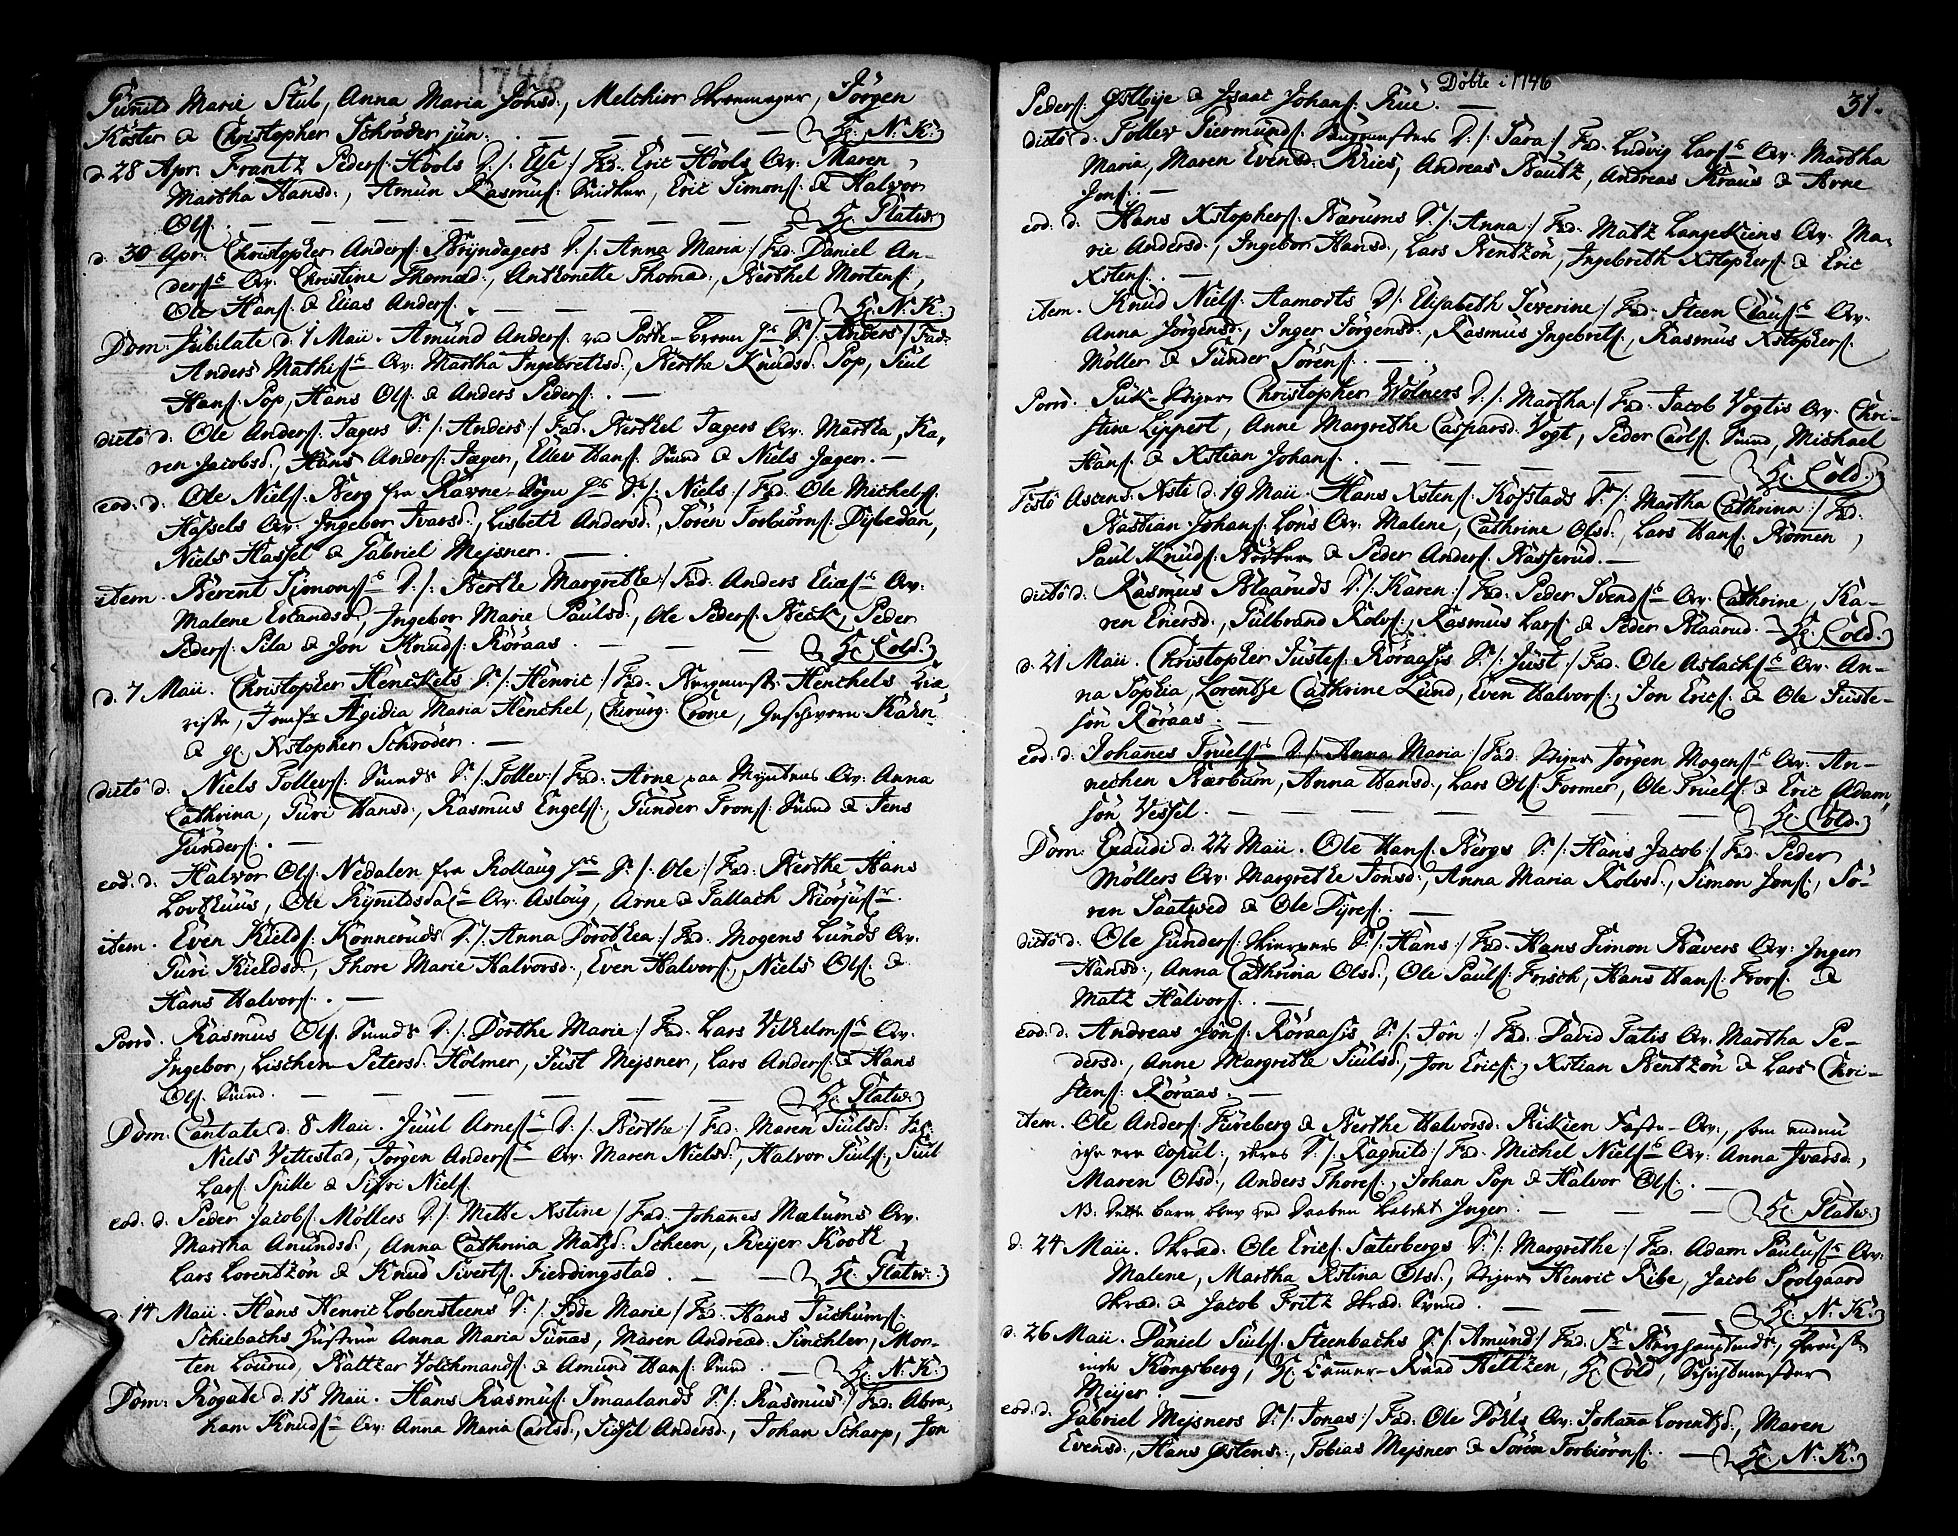 1746
Gunild Marie Stub, Anna Maria Johsd:, Melchior Kronmeyer, Jörgen
Köster & Christopher Schröder jun: H: N. K:
d. 28 Apr: Frantz Peders: Hools D:/: Else:/ Fad: Eric Hools Qv: Maren,
Martha Hansd:, Amun Rasmus: Snidker, Eric Simons: & Halvor
Ols: H: Platw:
d. 30 Apr: Christopher Anders: Bryndagers D:/: Anna Maria:/ Fad: Daniel An-
ders: Qv: Christine Thomad:, Anthonette Thomad:, Berthel Mortens:,
Ole Hans: & Elias Anders: H: N. K:
Dom: Jubilate d. 1 Maii. Amund Anders: S:/: Anders:/ Fad:
Anders Mathis: Qv: Martha Ingebrettsd:, Berthe Knudsd: Pop, Juul
Hans: Pop, Hans Ols: & Anders Peders:
dicto d. Ole Anders: Jagers S:/: Anders:/ Fad: Berthel Jagers Qv: Martha, Ka-
ren Jacobsd:, Hans Anders: Jæger, Ellev Hans: Smed & Niels Jager.
eod: d. Ole Niels: Berg fra Ravne-Sogn S:/: Niels:/ Fad: Ole Michels:
Hassels Qv: Ingebor Ivarsd:, Lisbeth Andersd:, Sören Torbiörns: Dybedan,
Niels Hassel & Gabriel Mejsner.
item. Berent Simons: D:/: Berthe Margrethe:/ Fad: Anders Elias: Qv:
Malene Erlandsd:, Ingebor Marie Paulsd:, Ole Peders: Beck, Peder
Peders: Pila & Jon Knuds: Röraas. H: Cold:
d. 7 Maii. Christopher Henckels S:/: Henric:/ Fad: Henchels
Jomfr Ægidia Maria Henchel, Chirurg: Crone, Geschworn:
& H: Xstopher Schröder.
dicto d. Niels Tollevs: Smeds S:/: Tollev:/ Fad: Arne paa Myntens Qv: Anna
Cathrina, Turi Hansd:, Rasmus Engels:, Gunder Frons: Smed & Jens
Gunders:
eod: d. Halvor Ols: Nedalen fra Rollaug S:/: Ole:/ Fad: Berthe Hans
Lovthuus, Ole Qv: Aslaug, Arne & Tallach
item. Even Kields: Konneruds D:/: Anna Dorothea:/ Fad: Mogens Lunds Qv:
Turi Kieldsd:, Thore Marie Halvorsd:, Even Halvors:, Niels Ols: &
Hans Halvors:
Porro. Rasmus Ols: Smeds D:/: Dorthe Marie:/ Fad: Lars Vilhelms: Qv:
Ingebor, Lischen Petersd: Holmer, Just Mejsner, Lars Anders: & Hans
Ols: Smed. H: Platw:
Dom: Cantate d. 8 Maii. Juul Arnes: D:/: Berthe:/ Fad: Maren Juulsd:
Niels Vettestad, Jörgen Anders: Qv: Maren Nielsd:, Halvor Juuls:, Juul
Lars: Spille & Siffri Niels:
eod: d. Peder Jacobs: Möllers D:/: Mette Xstine:/ Fad: Johanes Mælums Qv:
Martha Amundsd:, Anna Cathrina Matzd: Scheen, Reijer Kooth,
Lars Lorentzön & Knud Siverts: Fierdingstad. H: Platw:
d. 14 Maii. Hans Henric Lobensteens D:/: Edde Marie:/ Fad: Hans
Schiebachs Hustrue Anna Maria, Maren Andread: Sinchler, Mor-
ten Lourud, Baltzar Volchmands: & Amund Hans: Smed. H: N. K:
Dom: Rogate d. 15 Maii. Hans Rasmus: Smaalands S:/: Rasmus:/ Fad: Abra-
ham Knuds: Qv: Anna Maria Carlsd:, Sidsel Andersd:, Johan Scharp, Jon
Döbte i 1746
31.
Peders: Östbye & Isaac Johans: Rue.
dicto d. Tollev Giermunds: D:/: Sara:/ Fad: Ludvig Lars: Qv: Martha
Maria, Maren Evensd: Kries, Andreas Bautz, Andreas Kraus & Arne
Jons:
eod: d. Hans Xstophers: Bærums D:/: Anna:/ Fad: Matz Langekiens Qv: Ma-
rie Andersd:, Ingebor Hansd:, Lars Bentzön, Ingebreth Xstophers: & Eric
Xstens:
item. Knud Niels: Aamodts D:/: Elisabeth Severine:/ Fad: Steen Claus: Qv:
Anna Jörgensd:, Inger Jörgensd:, Rasmus Ingebrets:, Rasmus Xstophers:
Möller & Gunder Sörens:
Porro. Christopher Wölners D:/: Martha:/ Fad: Jacob Vogtis Qv: Chri-
stine Lippert, Anne Margrethe Caspersd: Vogt, Peder Carls: Smed, Michael
Hans: & Xstian Johans: H: Cold:
Festo Ascens: Xsti d. 19 Maii. Hans Xstens: Kofstads D:/: Martha Cathrina:/ Fad:
Bastian Johans: Löns Qv: Malene, Cathrine Olsd:, Lars Hans: Römen,
Paul Knuds: Bödker & Peder Anders: Basserud.
dicto d. Rasmus Blaaruds D:/: Karen:/ Fad: Peder Svends: Qv: Cathrine, Ka-
ren Enersd:, Gulbrand Kolvs:, Rasmus Lars: & Peder Blaarud. H: Cold:
d. 21 Maii. Christopher Justes: Röraasis S:/: Just:/ Fad: Ole Aslachs: Qv: An-
na Sophia, Lorentze Cathrine Lund, Even Halvors:, Jon Erics: & Ole Juste-
sön Röraas.
eod: d. Johanes Truels: D:/: Anna Maria:/ Fad: Jörgen Mogens: Qv: An-
nechen Bærbum, Anna Hansd:, Lars Ols: Former, Ole Truels: & Eric Adam-
sön Vessel. H: Cold:
Dom: Exaudi d. 22 Maii. Ole Hans: Bergs S:/: Hans Jacob:/ Fad: Peder
Möllers Qv: Margrethe Jonsd:, Anna Maria Kolvsd:, Simon Jons:, Sö-
ren Saatved & Ole Dyres:
dicto d. Ole Gunders: S:/: Hans:/ Fad: Hans Simon Ravers Qv: Inger
Hansd:, Anna Cathrina Olsd:, Ole Pauls: Frisch, Hans Hans: &
Matz Halvors:
eod: d. Andreas Jons: Röraasis S:/: Jon:/ Fad: David Tatis Qv: Martha Pe-
dersd:, Anne Margrethe Juulsd:, Jon Erics:, Xstian Bentzön & Lars Chri-
stens: Röraas.
item. Ole Anders: Fureberg & Berthe Halvorsd: Rikien Fæste-Qv:, som endnu
iche ere Copul:, deres D:/: Ragnild:/ Fad: Michel Niels: Qv: Anna Ivarsd:,
Maren Olsd:, Anders Thores:, Johan Pop & Halvor Ols:
NB. dette barn blev ved Daaben kaldet Inger. H: Platw:
d. 24 Maii. Skræd: Ole Erics: Saterbergs D:/: Margrethe:/ Fad: Adam Paulus: Qv:
Malene, Martha Xstina Olsd:, Henric Ribe, Jacob Soolgaard
Skræd: & Jacob Fritz Skræd: Svend. H: N. K:
d. 26 Maii. Daniel Juuls: Steenbachs S:/: Amund:/ Fad: Berghauptmd:,
Kongsberg, H: Cammer-Raad Heltzen, H: Cold, Schichtmester
Meyer.
eod: d. Gabriel Mejsners S:/: Jonas:/ Fad: Ole Pöhls Qv: Johana Lorentzd:, Maren
Evensd:, Hans Østens:, Tobias Mejsner & Sören Torbiörns: H: N. K: